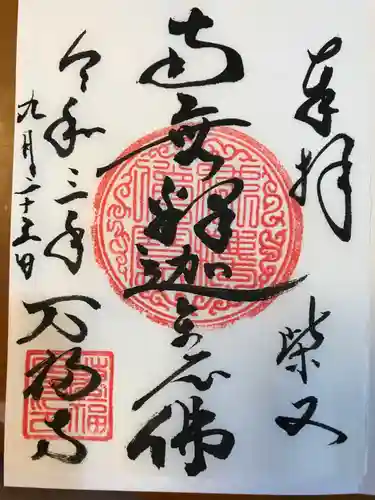 奉拝 柴又
南無釈迦牟尼佛
令和三年
九月二十五日
万福寺
萬福